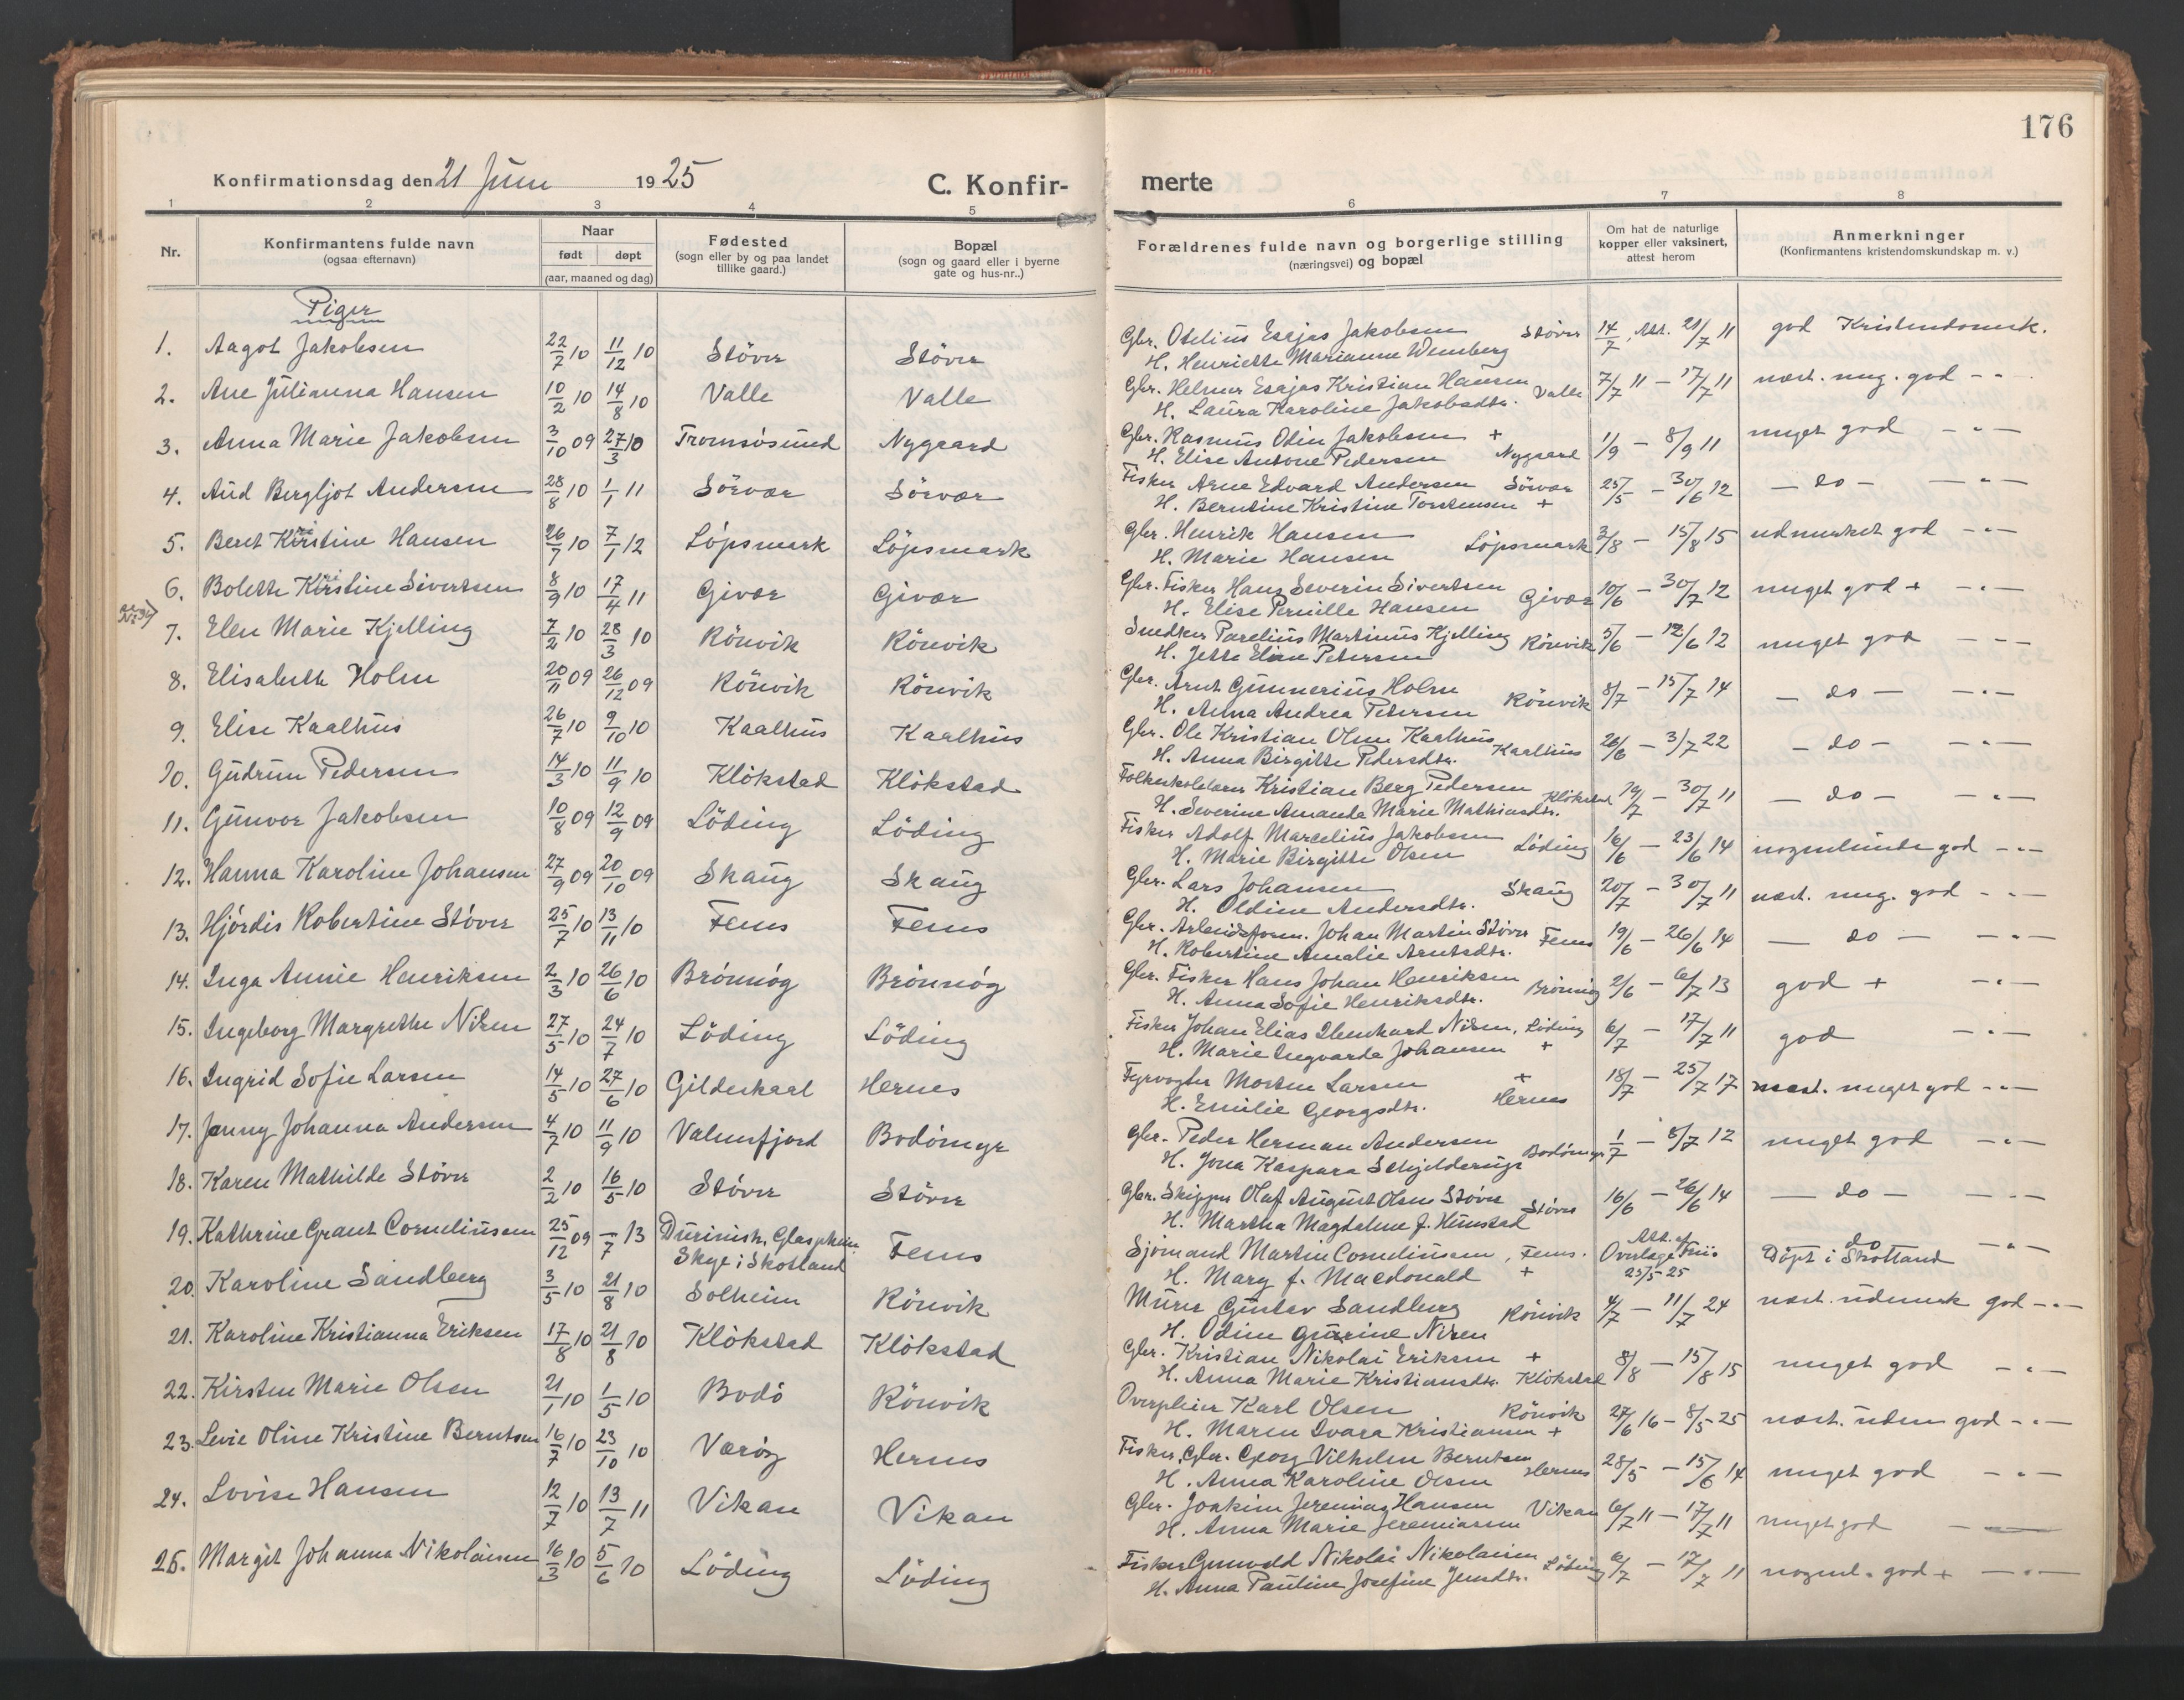 176
Konfirmationsdag den 21 Juni 1925 C. Konfir- merte
1 2 3 4 5 6 7 8
Nr. Konfirmantens fulde navn (ogsaa efternavn) Naar født døpt (aar, maaned og dag) Fødested (sogn eller by og paa landet tillike gaard.) Bopæl (sogn og gaard eller i byerne gate og hus-nr..) Forældrenes fulde navn og borgerlige stilling (næringsvei) og bopæl Om hat de naturlige kopper eller vaksinert, attest herom Anmerkninger (Konfirmantens kristendomskundskap m. v.)
Piger
1. Aagot Jakobsen 22/7 10 11/12 10 Støver Støver Gbr. Otelius Esajas Jakobsen Støver 14/7, Att. 21/7 11 god Kristendomsk.
H. Henriette Marianne Wennberg
2. Ane Julianna Hansen 10/2 10 14/8 10 Valle Valle Gbr. Helmer Esajas Kristian Hansen Valle 7/7 11 - 17/7 11 næst. mug. god - " -
H. Laura Karoline Jakobsdtr.
3. Anna Marie Jakobsen 3/10 09 27/3 10 Tromsøsund Nygaard Gbr. Rasmus Odin Jakobsen + 1/9 - 8/9 11 meget god - " -
H. Elise Antone Pedersen Nygaard
4. Aud Bergljot Andersen 28/8 10 1/1 11 Sörvær Sörvær Fisker Arne Edvard Andersen Sörvær 25/5 - 30/6 12 - do - - " -
H. Berntine Kristine Torstensen +
5. Beret Kristine Hansen 26/7 10 7/1 12 Løpsmark Løpsmark Gbr. Henrik Hansen Løpsmark 3/8 - 15/8 15 udmerket god - " -
H. Marie Hansen
6. Bolette Kristine Sivertsen 8/9 10 17/4 11 Givær Givær Gbr. Fisker Hans Severin Sivertsen Givær 10/6 - 30/7 12 meget god + - " -
H. Elise Pernille Hansen
7. Elen Marie Kjelling 7/2 10 28/3 10 Rönvik Rönvik Snedker Parelius Martinus Kjelling Rönvik 5/6 - 12/6 12 meget god - " -
H. Jette Eline Petersen
8. Elisabeth Holm 20/11 09 26/12 09 Rönvik Rönvik Gbr. Arnt Gunnerius Holm Rönvik 8/7 - 15/7 14 - do - - " -
H. Anna Andrea Petersen
9. Elise Kaalhus 26/7 10 9/10 10 Kaalhus Kaalhus Gbr. Ole Kristian Olsen Kaalhus Kaalhus 26/6 - 3/7 22 - do - - " -
H. Anna Birgitte Pedersdtr.
10. Gudrun Pedersen 14/3 10 11/9 10 Klökstad Klökstad Folkeskolelærer Kristian Berg Pedersen Klökstad 19/7 - 30/7 11 - do - - " -
H. Severine Amanda Marie Mathiasdtr.
11. Gunvor Jakobsen 10/8 09 12/9 09 Löding Löding Fisker Adolf Marcelius Jakobsen Löding 16/6 - 23/6 14 nogenlunde god - " -
H. Marie Birgitte Olsen
12. Hanna Karoline Johansen 27/9 09 20/10 09 Skaug Skaug Gbr. Lars Johansen Skaug 20/7 - 30/7 11 næst. mug. god - " -
H. Oldine Andersdtr.
13. Hjördis Robertine Støver 25/7 10 13/11 10 Fems Fems Gbr. Arbeidsform. Johan Martin Støver Fems 19/6 - 26/6 14 - do - - " -
H. Robertine Amalie Arntsdtr.
14. Inga Annie Henriksen 2/3 10 26/6 10 Brönnög Brönnög Gbr. Fisker Hans Johan Henriksen Brönnög 2/6 - 6/7 13 god + - " -
H. Anna Sofie Henriksdtr.
15. Ingeborg Margrethe Nilsen 27/5 10 24/7 10 Löding Löding Fisker Johan Elias Nilsen, Löding 6/7 - 17/7 11 god - " -
H. Marie Ingvarda Johansen +
16. Ingrid Sofie Larsen 14/5 10 27/6 10 Gildeskaal Hernes Fyrvogter Morten Larsen + 18/7 - 25/7 17 næst. meget god - " -
H. Emilie Georgsdtr. Hernes
17. Jenny Johanna Andersen 4/7 10 11/9 10 Valnesfjord Bodömyr Gbr. Peder Herman Andersen Bodömyr 1/7 - 8/7 12 meget god - " -
H. Jona Kaspara Schjelderup
18. Karen Mathilde Støver 2/2 10 16/5 10 Støver Støver Gbr. Skipper Olaf August Olsen Støver Støver 16/6 - 26/6 14 - do - - " -
H. Martha Magdalene f. Hunstad
19. Kathrine Grant Corneliussen 25/12 09 -/7 13 Durinish, Glasphein Skye i Skotland Fems Sjømand Martin Corneliussen, Fems. Att. af Overlæge Friis 25/5 25 do Döpt i Skotland - " -
H. Mary f. Macdonald +
20. Karoline Sandberg 3/5 10 21/8 10 Solheim Rönvik Murer Gustav Sandberg Rönvik 4/7 - 11/7 24 næst. udmerk god - " -
H. Odine Gurine Nilsen
21. Karoline Kristianna Eriksen 17/8 10 21/8 10 Klökstad Klökstad Gbr. Kristian Nikolai Eriksen + 8/8 - 15/8 15 meget god - " -
H. Anna Marie Kristiansdtr. Klökstad
22. Kirsten Marie Olsen 21/1 10 1/5 10 Bodö Rönvik Overpleier Karl Olsen Rönvik 27/6 16 - 8/5 25 næst. udm god - " -
H. Maren Ivara Kristiansen +
23. Levie Oline Kristine Berntsen 16/7 10 23/10 10 Værøy Hernes Fisker, Gbr. Georg Vilhelm Berntsen Hernes 28/5 - 15/6 14 meget god - " -
H. Anna Karoline Olsen
24. Lovise Hansen 12/7 10 13/7 11 Vikan Vikan Gbr. Joakim Jeremias Hansen Vikan 6/7 11 - 17/7 11 meget god -
H. Anna Marie Jeremiassen
25. Margit Johanna Nikolaisen 16/3 10 5/6 10 Löding Löding Fisker Grunvold Nikolai Nikolaisen Löding 6/7 - 17/7 11 nogenl. god + - " -
H. Anna Pauline Josefine Jensdtr.